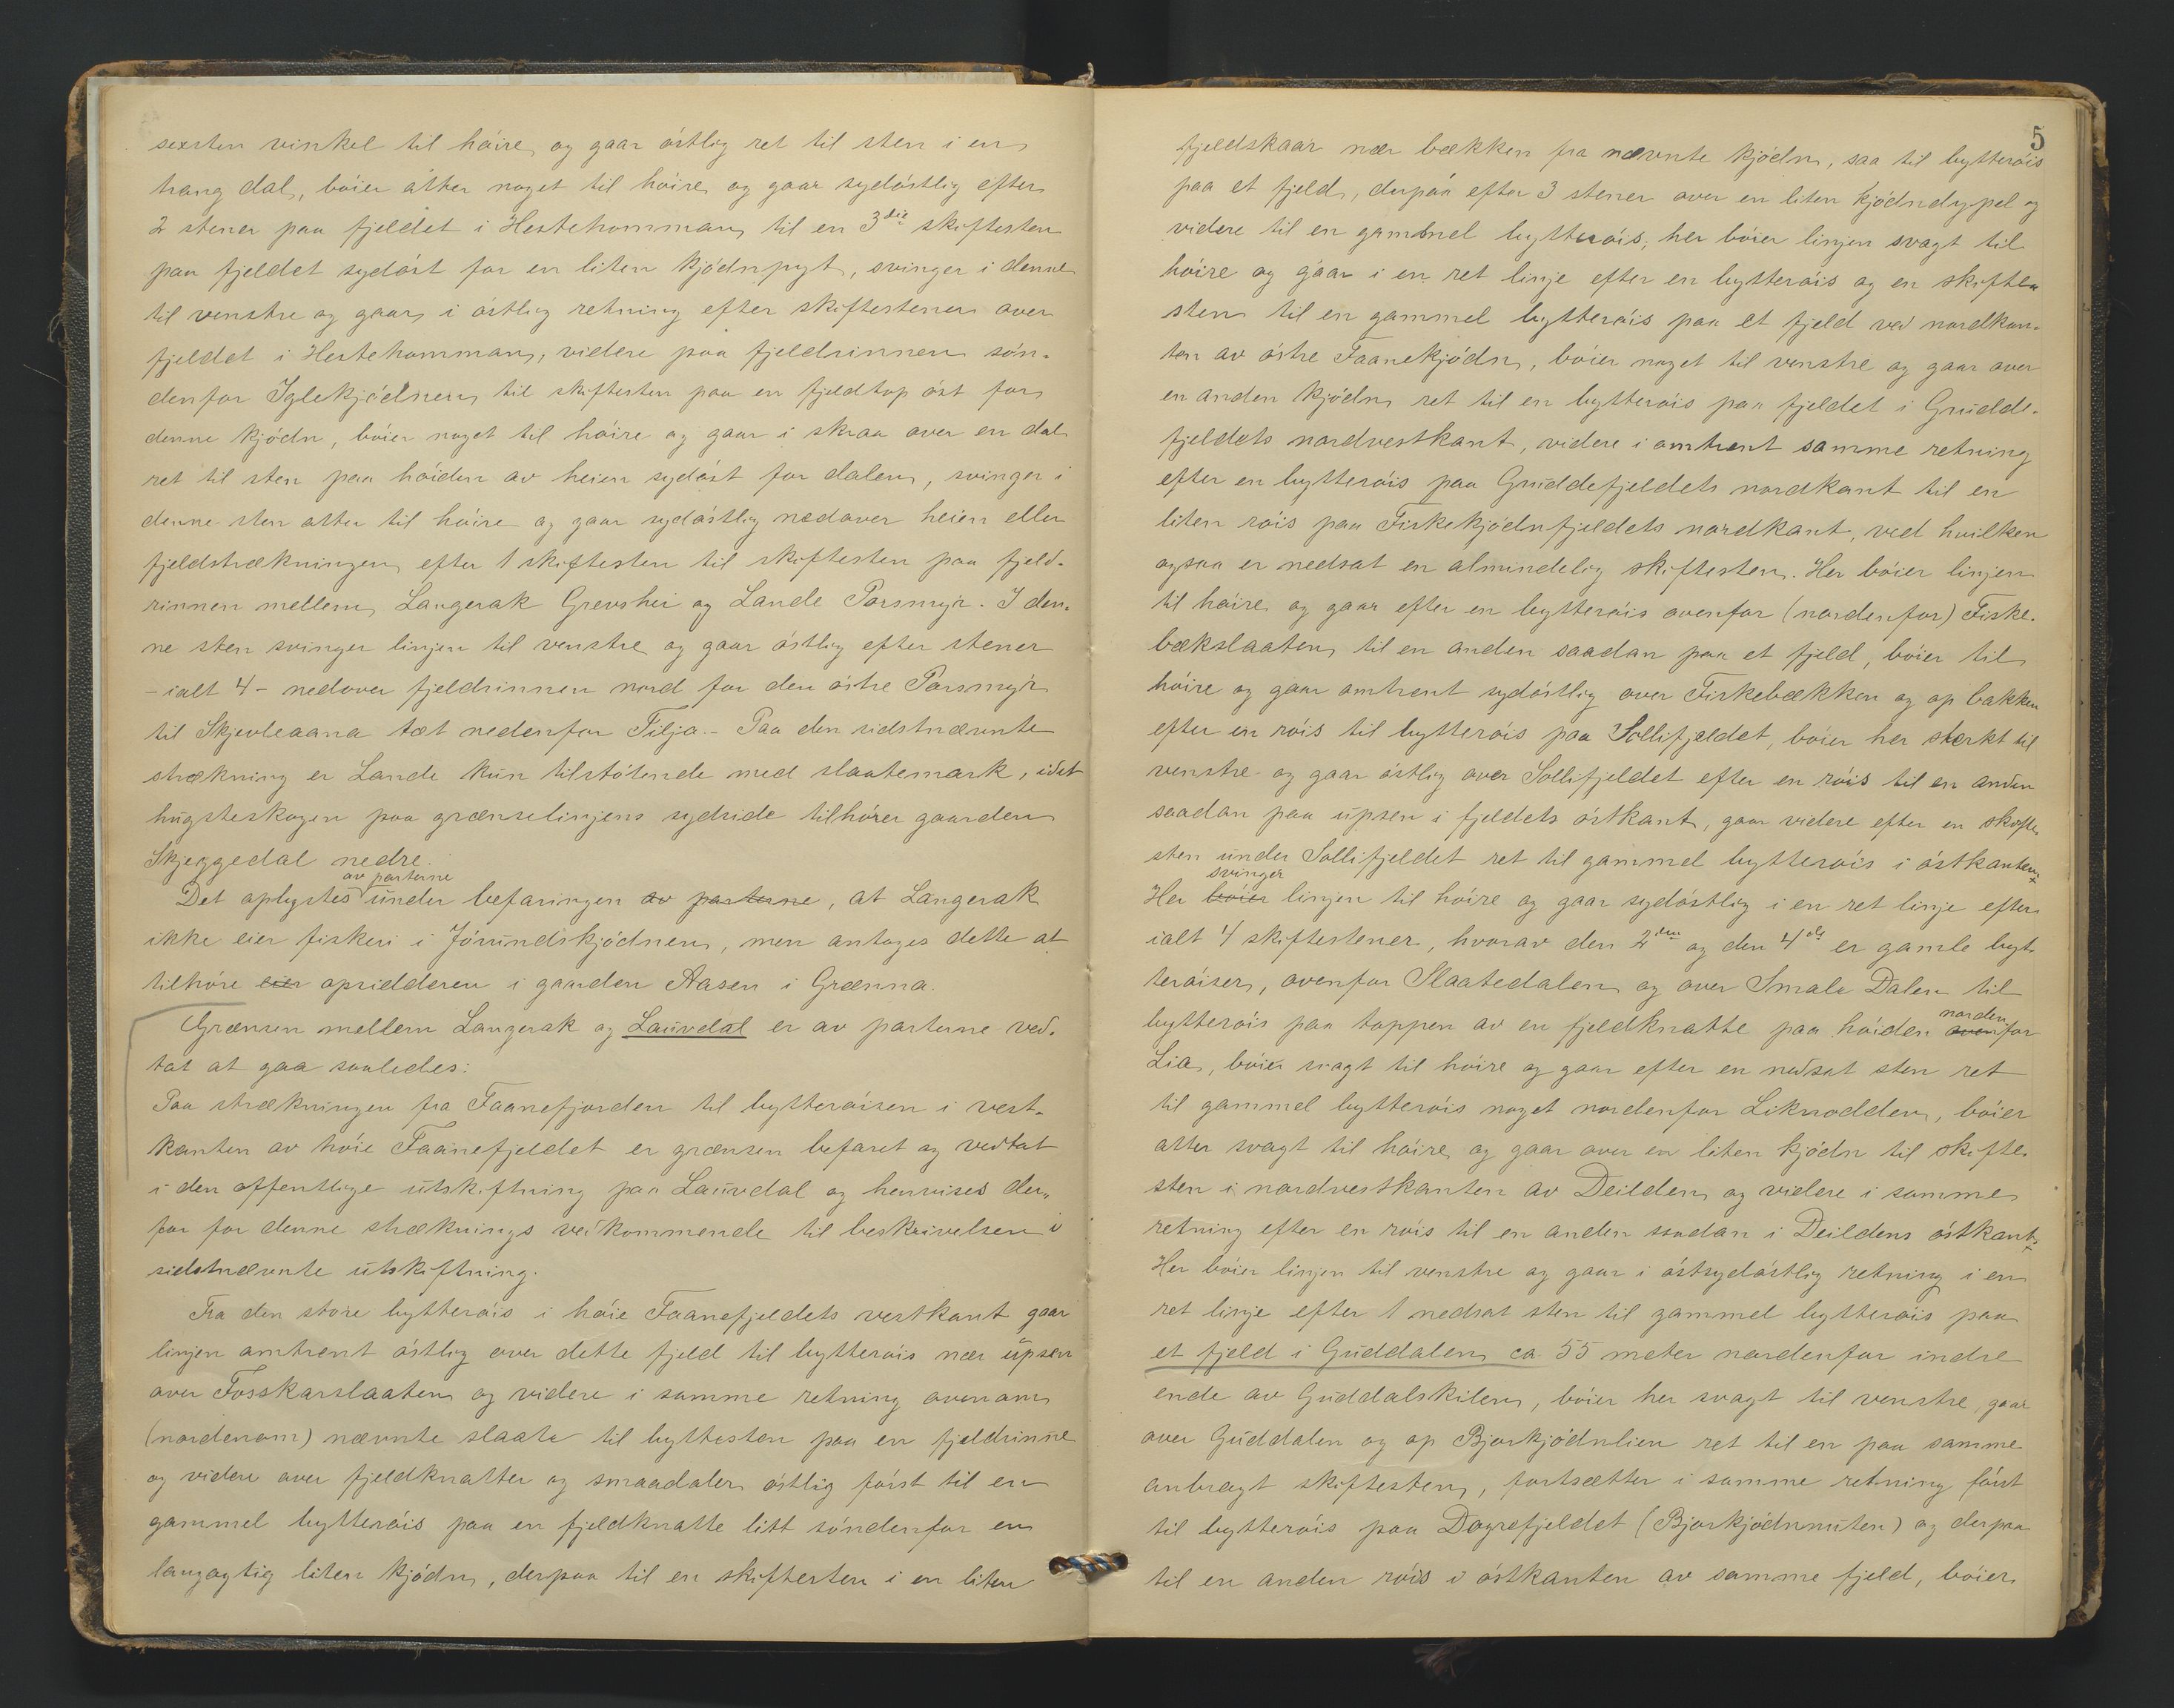 sexsten vinkel til höire og gaar östlig ret til sten i en
trang dal, böier atter noget til höire og gaar sydöstlig efter
2 stener paa fjeldet i Hestehomman til en 3die skiftesten
paa fjeldet sydöst for en liten kjödnpyt, svinger i denne
til venstre og gaar i östlig retning efter skiftestener over
fjeldet i Hestehomman, videre paa fjeldrinnen sön-
denfor Iglekjödnen til skiftesten paa en fjeldtop öst for
denne kjödn, böier noget til höire og gaar i skraa over en dal
ret til sten paa höiden av heien sydöst for dalen, svinger i
denne sten atter til höire og gaar sydöstlig nedover heien eller
fjeldstrækningen efter 1 skiftesten til skiftesten paa fjeld-
rinnen mellem Langerak Grevshei og Lande Porsmyr. I den-
ne sten svinger linjen til venstre og gaar östlig efter stener
- ialt 4 - nedover fjeldrinnen nord for den östre Porsmyr
til Skjevleaana tæt nedenfor Tilja. - Paa den sidstnævnte
strækning er Lande kun tilstötende med slaatemark, idet
hugsteskogen paa grænselinjens sydside tilhörer gaarden
Skjeggedal nedre.
Det oplystes av parterne under befaringen av parterne, at Langerak
ikke eier fiskeri i Jörundskjödnen, men antages dette at
tilhöre eier opsidderen i gaarden Aasen i Grænna.
Grænsen mellem Langerak og Lauvdal er av parterne ved-
tat at gaa saaledes:
Paa strækningen fra Faanefjorden til bytteröisen i vest-
kanten av höie Faanefjeldet er grænsen befaret og vedtat
i den offentlige utskiftning paa Lauvdal og henvises der-
for for denne stræknings vedkommende til beskrivelsen i
sidstnævnte utskiftning.
Fra den store bytteröis i höie Faanefjeldets vestkant gaar
linjen omtrent östlig over dette fjeld til bytteröis nær upsen
over Fosskarslaaten og videre i samme retning ovenom
(nordenom) nævnte slaate til byttesten paa en fjeldrinne
og videre over fjeldknatter og smaadaler östlig först til en
gammel bytteröis paa en fjeldknatte litt söndenfor en
langagtig liten kjödn, derpaa til en skiftesten i en liten
5
fjeldskaar nær bækken fra nævnte kjödn, saa til bytteröis
paa et fjeld, derpaa efter 3 stener over en liten kjödndypel og
videre til en gammel bytteröis; her böier linjen svagt til
höire og gaar i en ret linje efter en bytteröis og en skifte-
sten til en gammel bytteröis paa et fjeld ved nordkan-
ten av östre Faanekjödn, böier noget til venstre og gaar over
en anden kjödn ret til en bytteröis paa fjeldet i Gudde-
fjeldets nordvestkant, videre i omtrent samme retning
efter en bytteröis paa Guddefjeldets nordkant til en
liten röis paa Fiskekjödnfjeldets nordkant, ved hvilken
ogsaa er nedsat en almindelig skiftesten. Her böier linjen
til höire og gaar efter en bytteröis ovenfor (nordenfor) Fiske-
bækslaaten til en anden saadan paa et fjeld, böier til
höire og gaar omtrent sydöstlig over Fiskebækken og op bakken
efter en röis til bytteröis paa Sollifjeldet, böier her sterkt til
venstre og gaar östlig over Sollifjeldet efter en röis til en anden
saadan paa upsen i fjeldets östkant, gaar videre efter en skifte-
sten under Sollifjeldet ret til gammel bytteröis i östkanten.
Her böier svinger linjen til höire og gaar sydöstlig i en ret linje efter
ialt 4 skiftestener, hvorav den 2den og den 4de er gamle byt-
teröiser, ovenfor Slaatedalen og over Smale Dalen til
bytteröis paa toppen av en fjeldknatte paa höiden oven nordenfor
Lia, böier svagt til höire og gaar efter en nedsat sten ret
til gammel bytteröis noget nordenfor Liknodden, böier
atter svagt til höire og gaar over en liten kjödn til skifte-
sten i nordvestkanten av Deilden og videre i samme
retning efter en röis til en anden saadan i Deildens östkant.
Her böier linjen til venstre og gaar i östsydöstlig retning i en
ret linje efter 1 nedsat sten til gammel bytteröis paa
et fjeld i Guddalen ca 55 meter nordenfor indre
ende av Guddalskilen, böier her svagt til venstre, gaar
over Guddalen og op Bjorkjödnlien ret til en paa samme
anbragt skiftesten, fortsætter i samme retning först
til bytteröis paa Dogrefjeldet (Bjorkjödnnuten) og derpaa
til en anden röis i östkanten av samme fjeld, böier